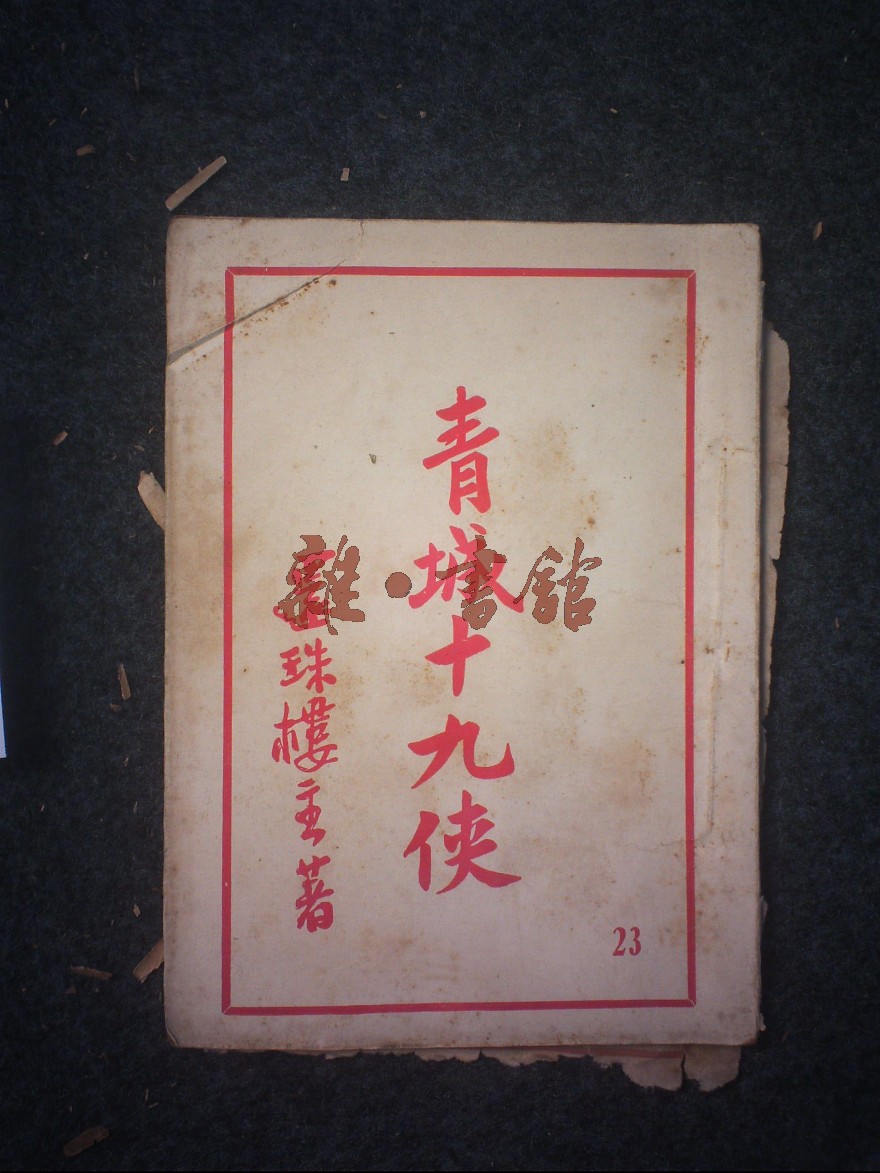 青城十九俠
還珠樓主著
23
雜·書館